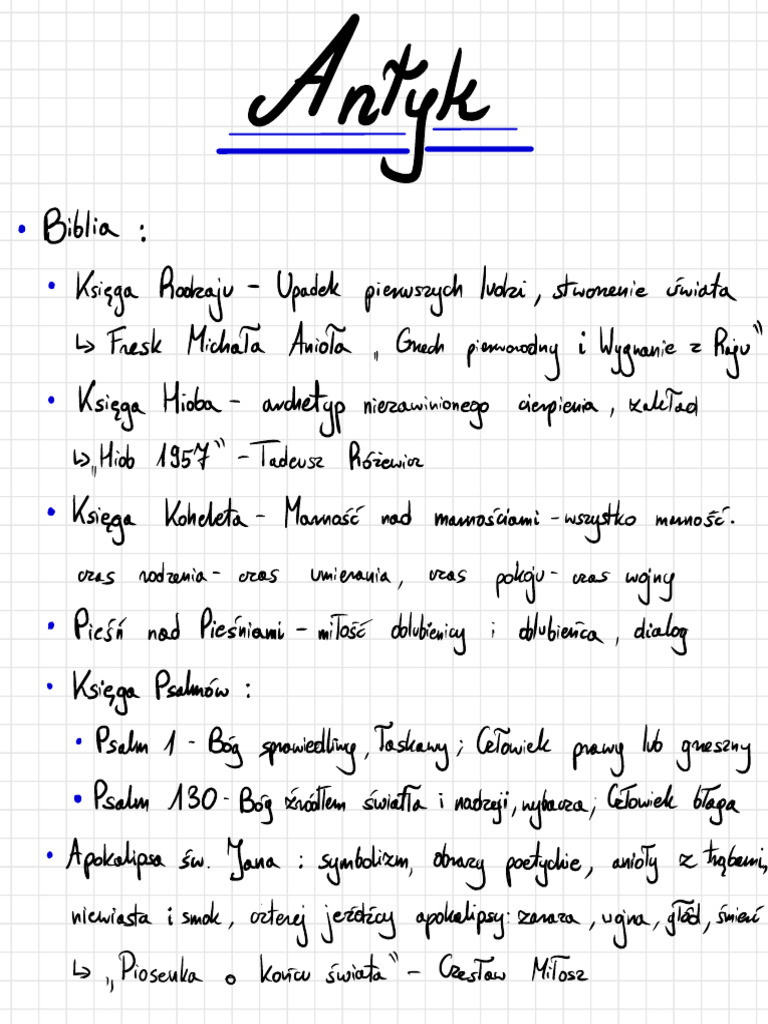 Antyk
• Biblia :
• Księga Rodzaju – Upadek pierwszych ludzi, stworzenie świata
↳ Fresk Michała Anioła „Grzech pierworodny i Wygnanie z Raju”
• Księga Hioba – archetyp niezawinionego cierpienia, zakład
↳ „Hiob 1957” – Tadeusz Różewicz
• Księga Koheleta – Marność nad marnościami – wszystko marność.
czas rodzenia – czas umierania, czas pokoju – czas wojny
• Pieśń nad Pieśniami – miłość oblubienicy i oblubieńca, dialog
• Księga Psalmów :
• Psalm 1 – Bóg sprawiedliwy, łaskawy; Człowiek prawy lub grzeszny
• Psalm 130 – Bóg źródłem światła i nadzieji, wybacza; Człowiek błaga
• Apokalipsa św. Jana : symbolizm, obrazy poetyckie, anioły z trąbami,
niewiasta i smok, czterej jeźdźcy apokalipsy: zaraza, wojna, głód, śmierć
↳ „Piosenka o końcu świata” – Czesław Miłosz